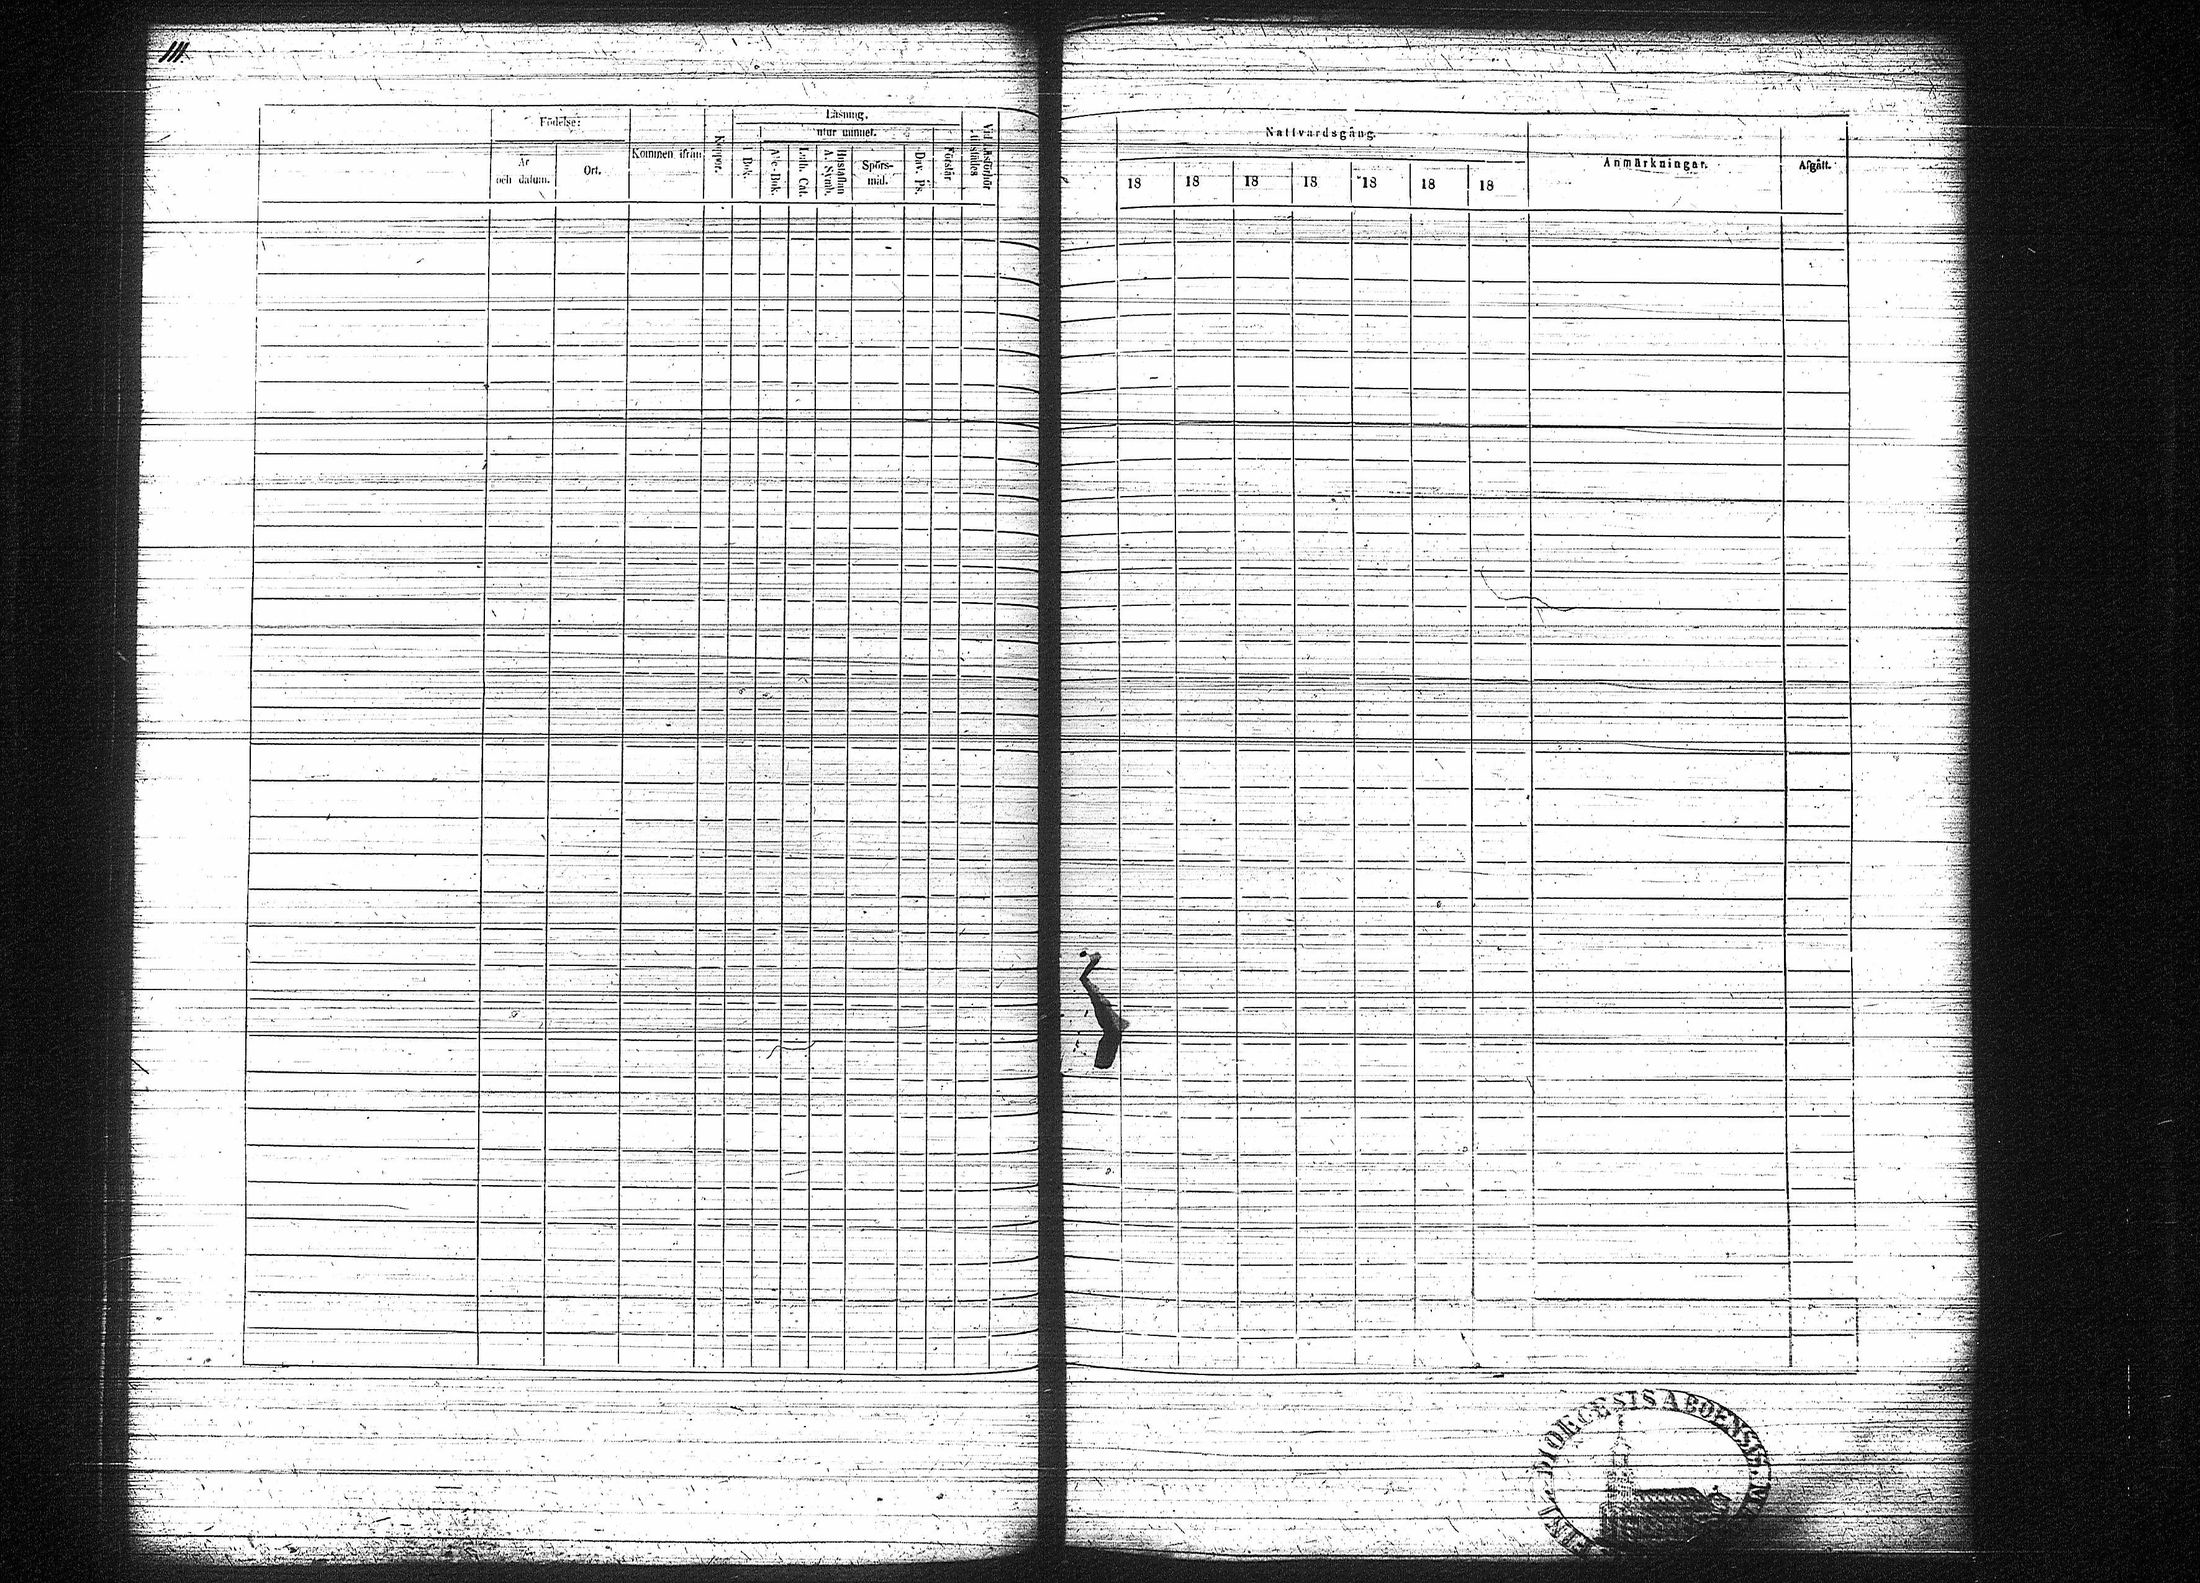 111.
Födelse:
År
och datum.
Ort.
Kommen ifrån
Koppor.
Läsning,
utur minnet.
I Bok.
Abc-Bok.
Luth. Cat.
Hustaflan
A. Symb.
Spörs-
mål.
Dav. Ps.
Förstår
Vid Läsförhör
Nattvardsgång.
18 18 18 18 18 18 18
Anmärkningar.
Afgått.
DIOECESIS ABOENSIS